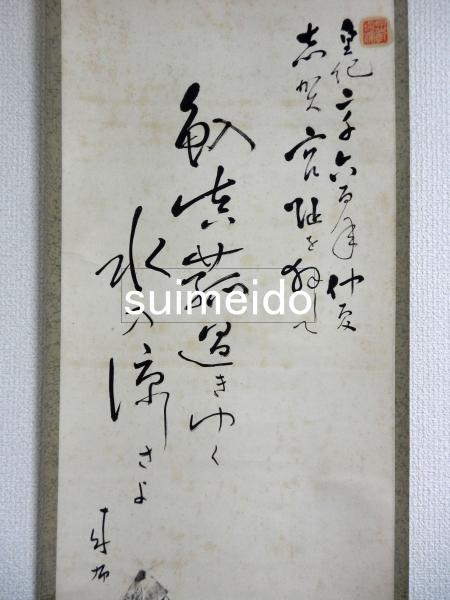 皇紀二千六百年仲夏
志賀宮址を拝して
真菰
過きゆく
水の涼
さよ
suimeido